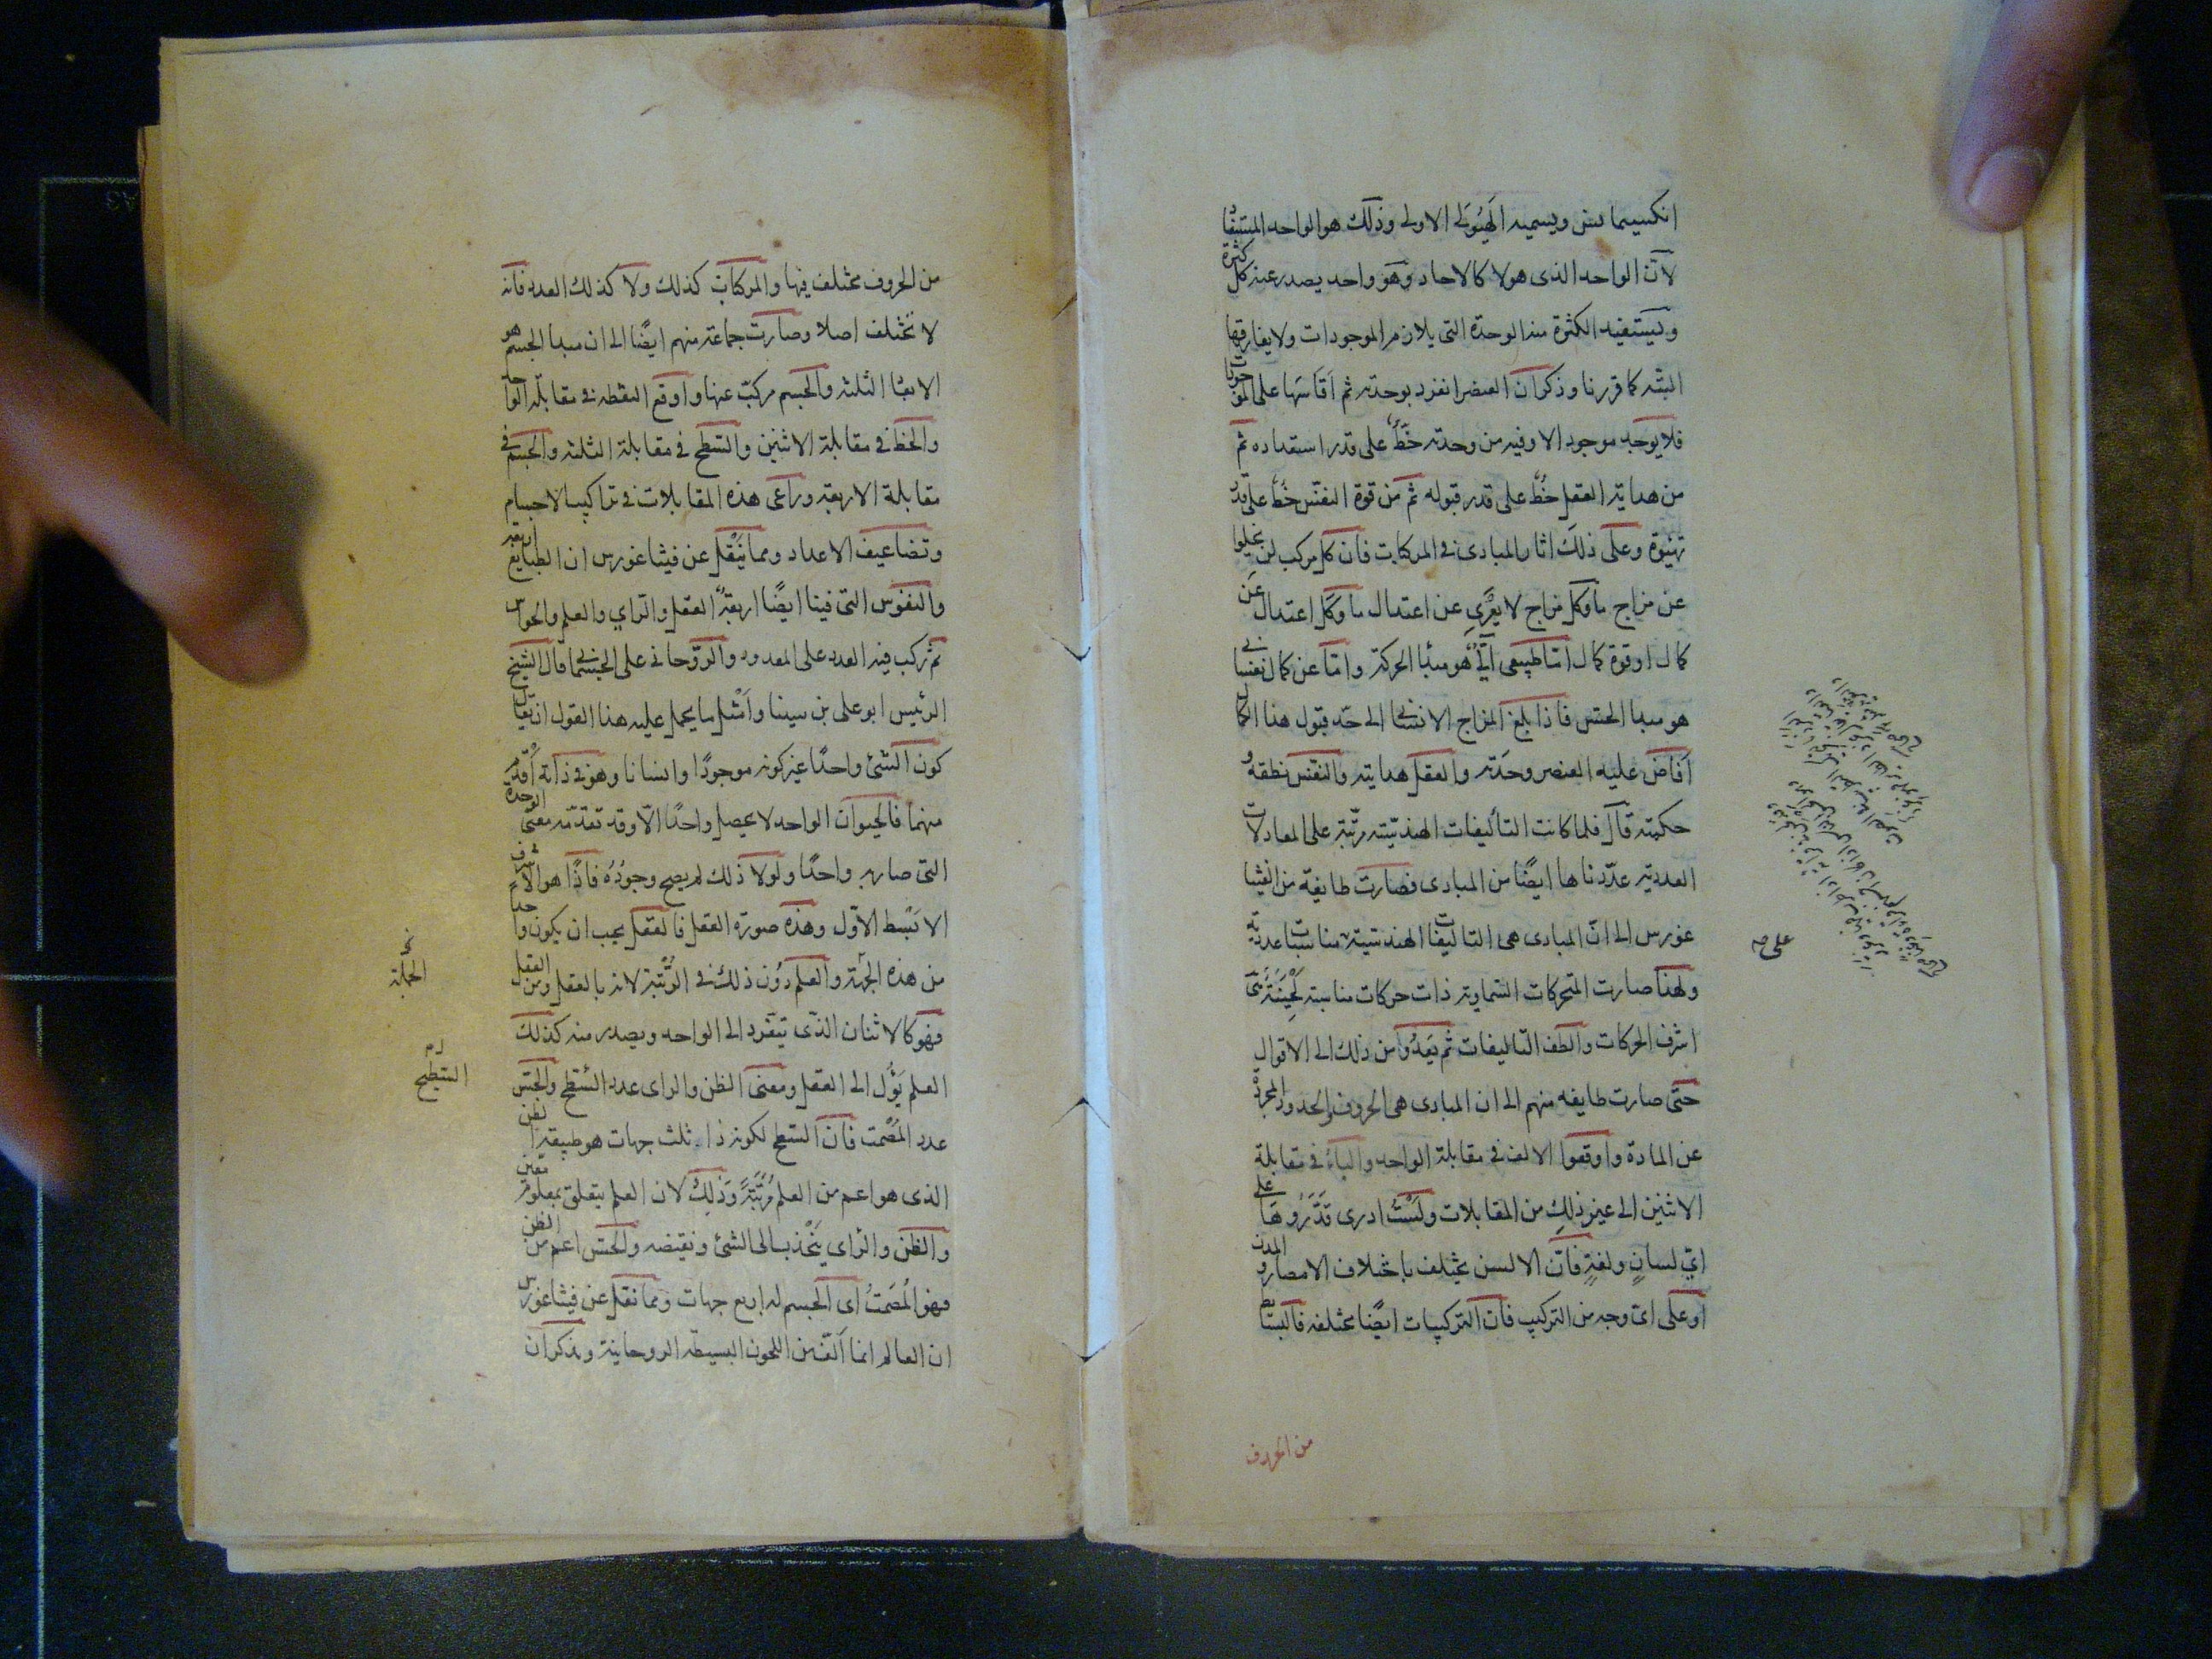 انكسيمانس ويسميه الهيولى الاولى وذلك هو الواحد المستفاد
لان الواحد الذى هو لا كالاحاد وهو واحد يصدر عنه كل كثرة
ويستفيد الكثرة منه الوحدة التى يلازم الموجودات ولا يفارقها
البتّه كما قررنا وذكر ان العنصر انفرد بوحدته ثم افاضها على الموجودات
فلا يوجد موجود الا وفيه من وحدته حَظّ على قدر استعداده ثم
من هداية العقل حُظّ على قدر قبوله ثم من قوة النفس حُظّ على قدر
تهيئوة وعلى ذلك اثار المبادى فى المركبات فان كل مركب لن يخلوا
عن مزاج ما وكل مزاج لا يعرّى عن اعتدال ما وكل اعتدال عن
كمال او قوة كمال امّا طبيعى آلىّ هو مبدا الحركة وامّا عن كمال نفسانى
هو مبدا الحسّ فاذا بلغ المزاج الانسانى الى حدّ قبول هذا الكمال
اَفاض عليه العنصر وحَدته والعقل هدايته والنفس نطقه و
حكمته قال فلما كانت التأليفات الهندسّيه مرتّبة على المعادلات
العددية عدّدناها ايضًا من المبادى فصارت طايفة من الفيثا
غورس الى انّ المبادى هى التاليفات الهندسية مناسبات عددية
ولهذا صارت المتحركات السّماوية ذات حركات مناسبة لحنيَّة هى
اشرف الحركات والطف التاليفات ثم يَعدُوا من ذلك الى الاقوال
حتّى صارت طايفه منهم الى ان المبادى هى الحروف والحدود المجردة
عن المادة واوقعوا الالف فى مقابلة الواحد والباء فى مقابلة
الاثنين الى غير ذلِك من المقابلات ولَسْتُ ادرى قدَّرُوهَا على
اىّ لسانٍ ولغةٍ فانّ الالسن يختلف باختلاف الامصار والمدن
او على اىّ وجه من التركيب فان التركيبات ايضًا مختلفه فالبسايط
على صه
من الحروف
من الحروف مختلف فيها والمركبات كذلك ولا كذلك العدد فانه
لا تختلف اصلا وصارت جماعة منهم ايضًا الى ان مبدا الجسم هو
الابعا الثلثه والجسم مركبّ عنها واوقع النقطه فى مقابلة الواحد
والخط فى مقابلة الاثنين والسّطح فى مقابلة الثلثه والجسم فى
مقابلة الاربعة وراعَى هذه المقابلات فى تراكيب الاجسام
وتضاعيف الاعداد ومما يُنقل عن فيثاغورس ان الطبايع اربعة
والنفوس التى فينا ايضًا اربعةٌ العقل والرّاي والعلم والحواس
ثم ركب فيه العدد على المعدود والروّحانى على الجسمانى قال الشيخ
الرئيس ابو على بن سينا واَمْثل ما يحمل عليه هذا القول ان يقال
كون الشىئ واحدًا غير كونه موجودًا وانسانا وهو فى ذاته اَقدم
منهما فالحيوان الواحد لا يحصل واحدًا الّا وقد تقدّمه معنى الوحدة
التى صار به واحدًا ولولا ذلك لم يصح وجوُدُهُ فاذًا هو الاشرف
الابسط الاوّل وهذه صورة العقل فالعقل يجب ان يكون واحدا
من هذه الجهة والعلم دوُن ذلك فى الرُّتبة لانه بالعقل ومن العقل
فهو كالاثنان الذّى يتفرد الى الواحد ويصدر منه كذلك
العلم يَؤُل الى العقل ومعنى الظن والراى عدد السّطح والحسّ
عدد المُصْمت فان السّطح لكونه ذا ثلث جهات هو طبيعة الظن
الذى هو اعم من العلم مُرُتَّبَةً وَذلِكُ لان العلم يتعلق بمعلوم معّين
والظن والرّاى يَنْجذب الى الشئ ونقيضه والحسّ اعم من الظن
فهو المُصَمتُ اى الجسم له اربع جهات ومما نقل عن فيثاغورس
ان العالم انما اَلّف من اللحون البسيطه الروحانية ويذكر ان
الجملة
السّطح